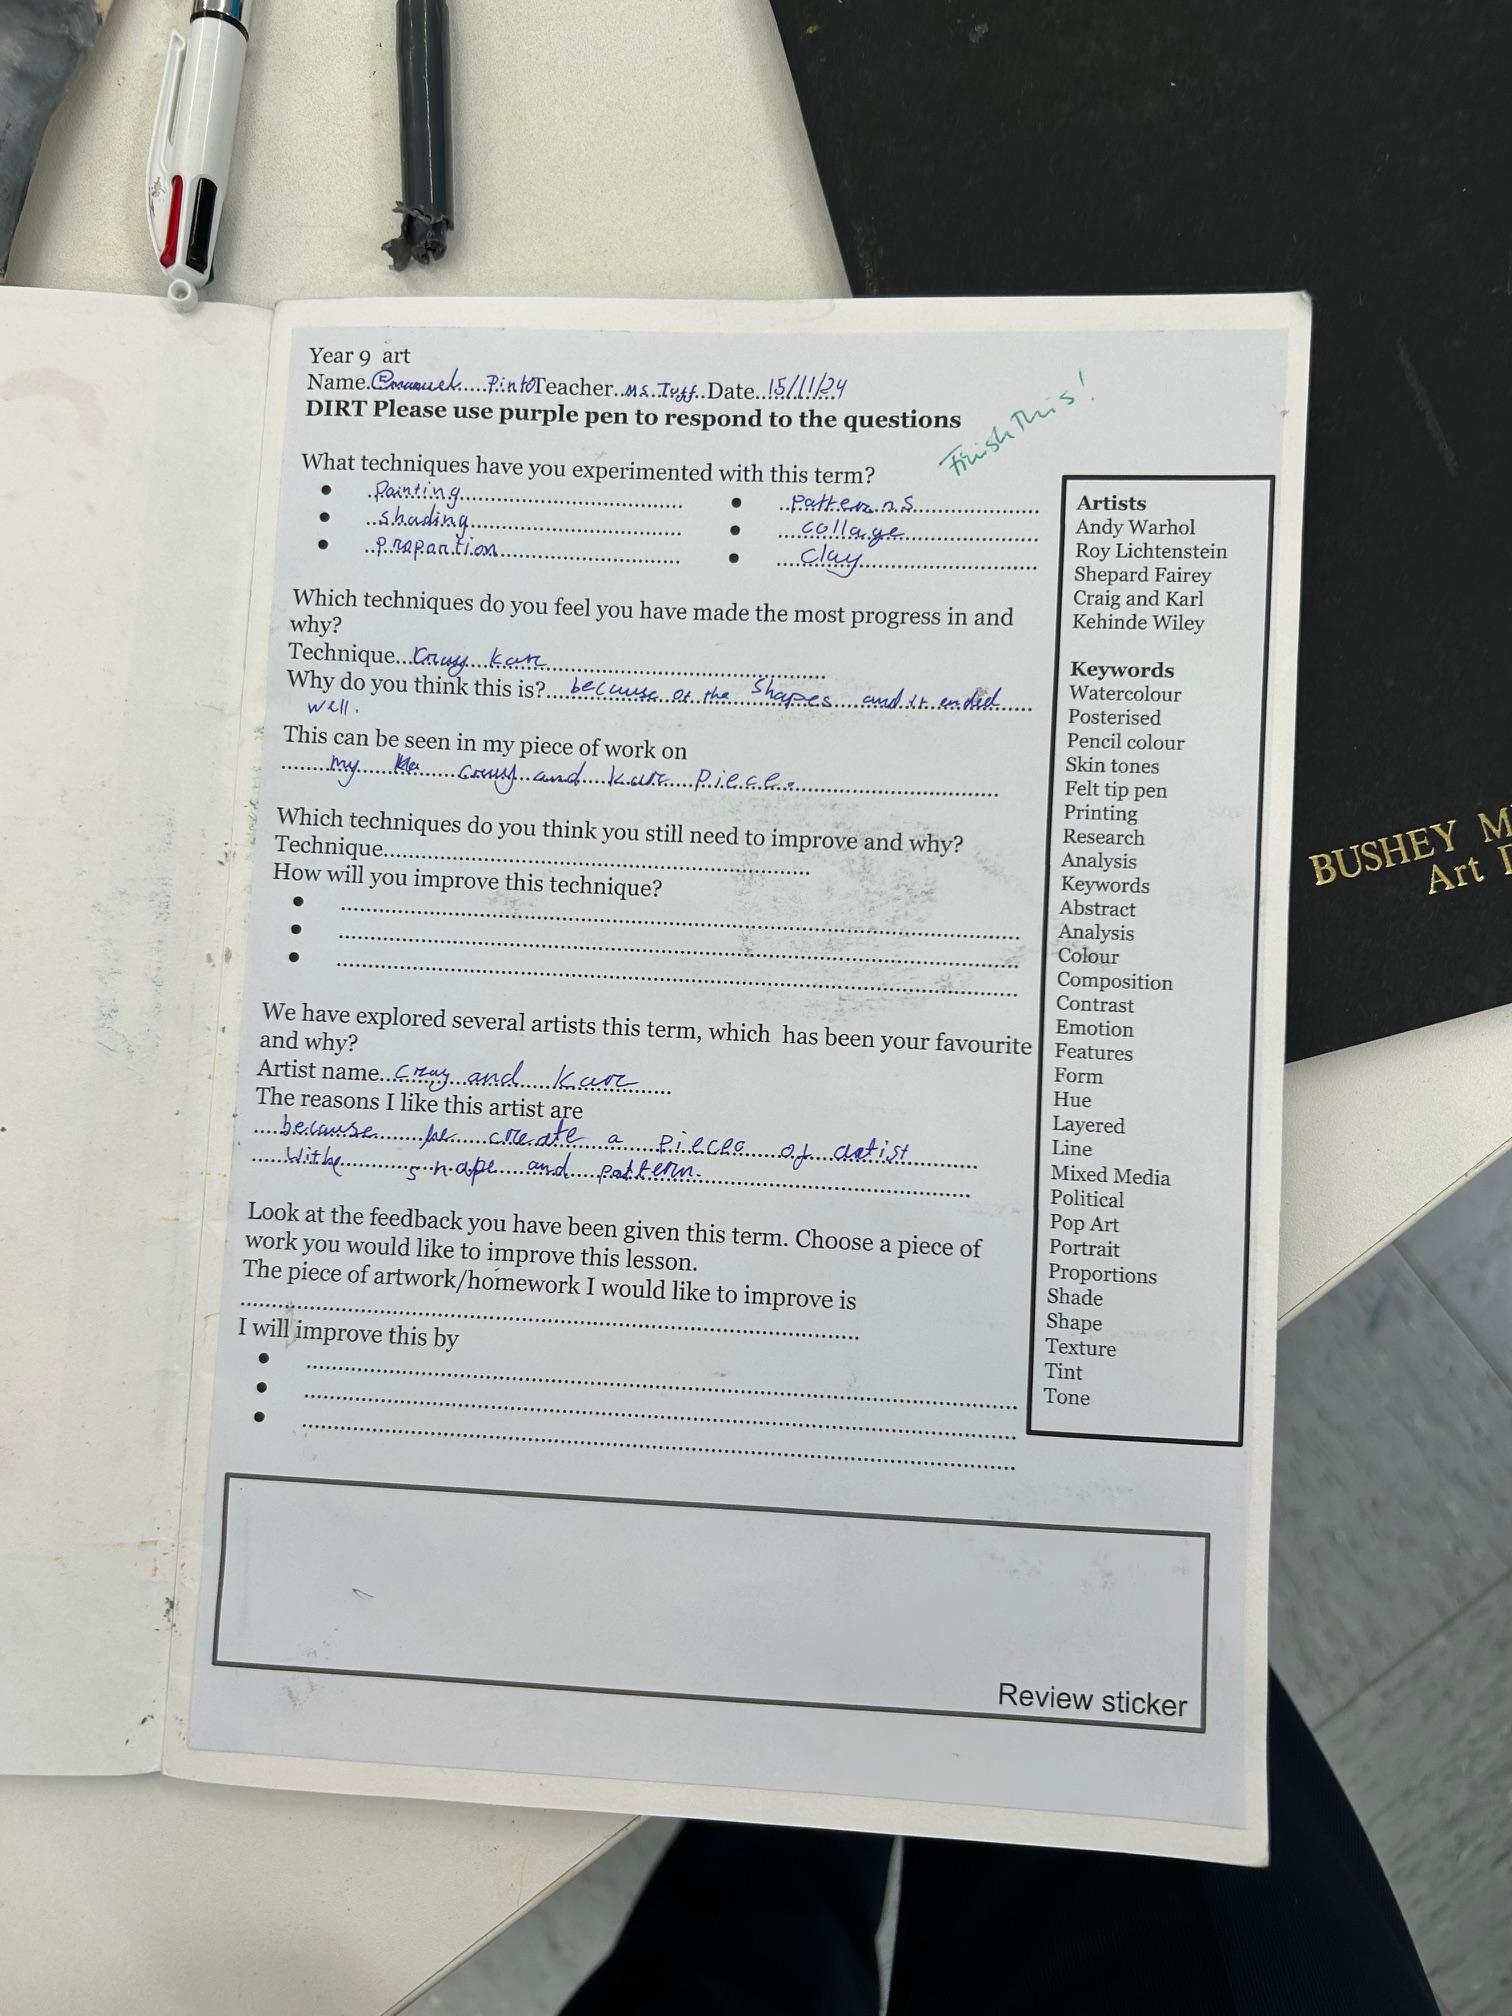 Year 9 art
Name. Emanuel Pinto Teacher. Ms. Tuff. Date. 15/11/24
DIRT Please use purple pen to respond to the questions
Finish This!
What techniques have you experimented with this term?
• Painting
• shading
• proportion
• patterns
• collage
• clay
Which techniques do you feel you have made the most progress in and
why?
Technique... Karl
Why do you think this is?... because of the shapes and it ended
well.
This can be seen in my piece of work on
my and Karl piece.
Which techniques do you think you still need to improve and why?
Technique
How will you improve this technique?
•
•
•
We have explored several artists this term, which has been your favourite
and why?
Artist name.. cray and Karl
The reasons I like this artist are
because he create a pieces of artist
withe shape and pattern.
Look at the feedback you have been given this term. Choose a piece of
work you would like to improve this lesson.
The piece of artwork/homework I would like to improve is
I will improve this by
•
•
•
Artists
Andy Warhol
Roy Lichtenstein
Shepard Fairey
Craig and Karl
Kehinde Wiley
Keywords
Watercolour
Posterised
Pencil colour
Skin tones
Felt tip pen
Printing
Research
Analysis
Keywords
Abstract
Analysis
Colour
Composition
Contrast
Emotion
Features
Form
Hue
Layered
Line
Mixed Media
Political
Pop Art
Portrait
Proportions
Shade
Shape
Texture
Tint
Tone
Review sticker
BUSHEY M
Art D